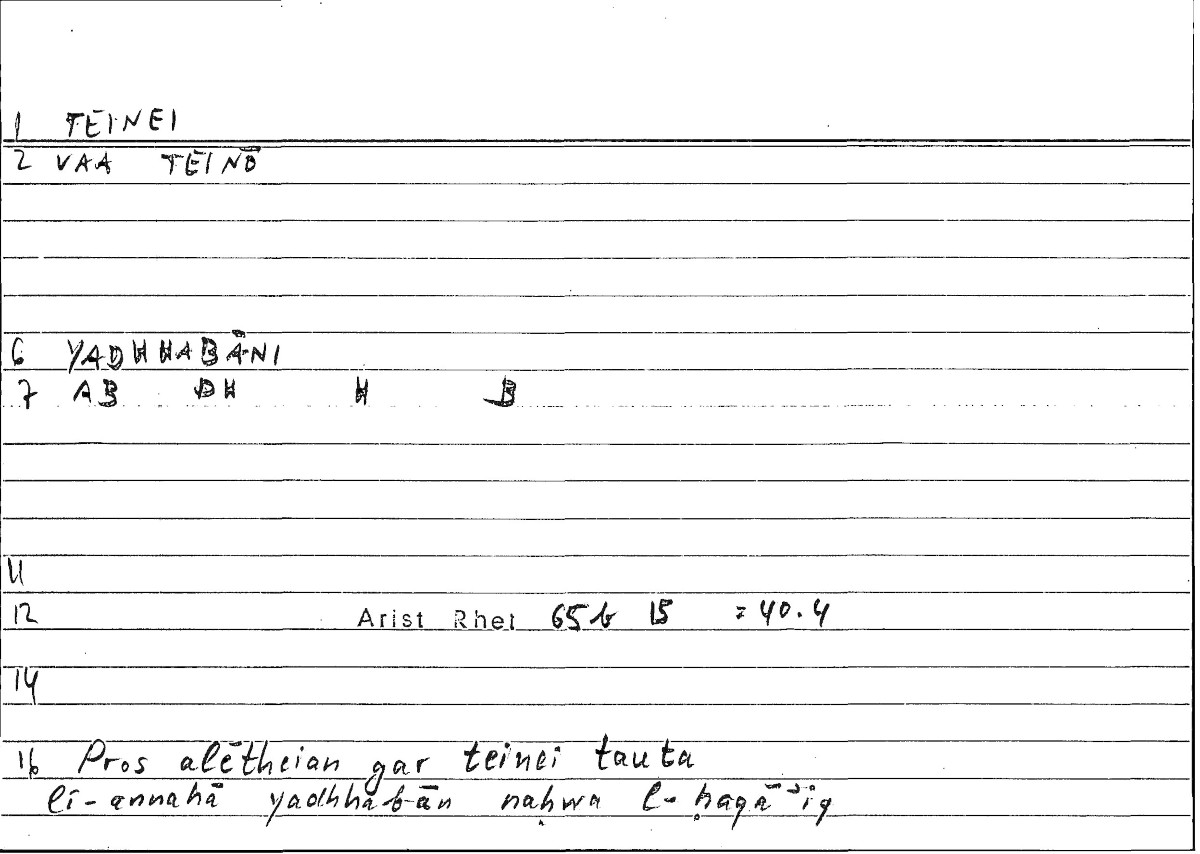 1 TEINEI
2 VAA TEINŌ
6 YADHHABĀNI
7 AB DH H B
11
12 Arist Rhet 65b 15 =40.4
14
16 Pros alētheian gar teinei tauta
li-annahā yadhhabān naḥwa l-ḥaqāʾiq